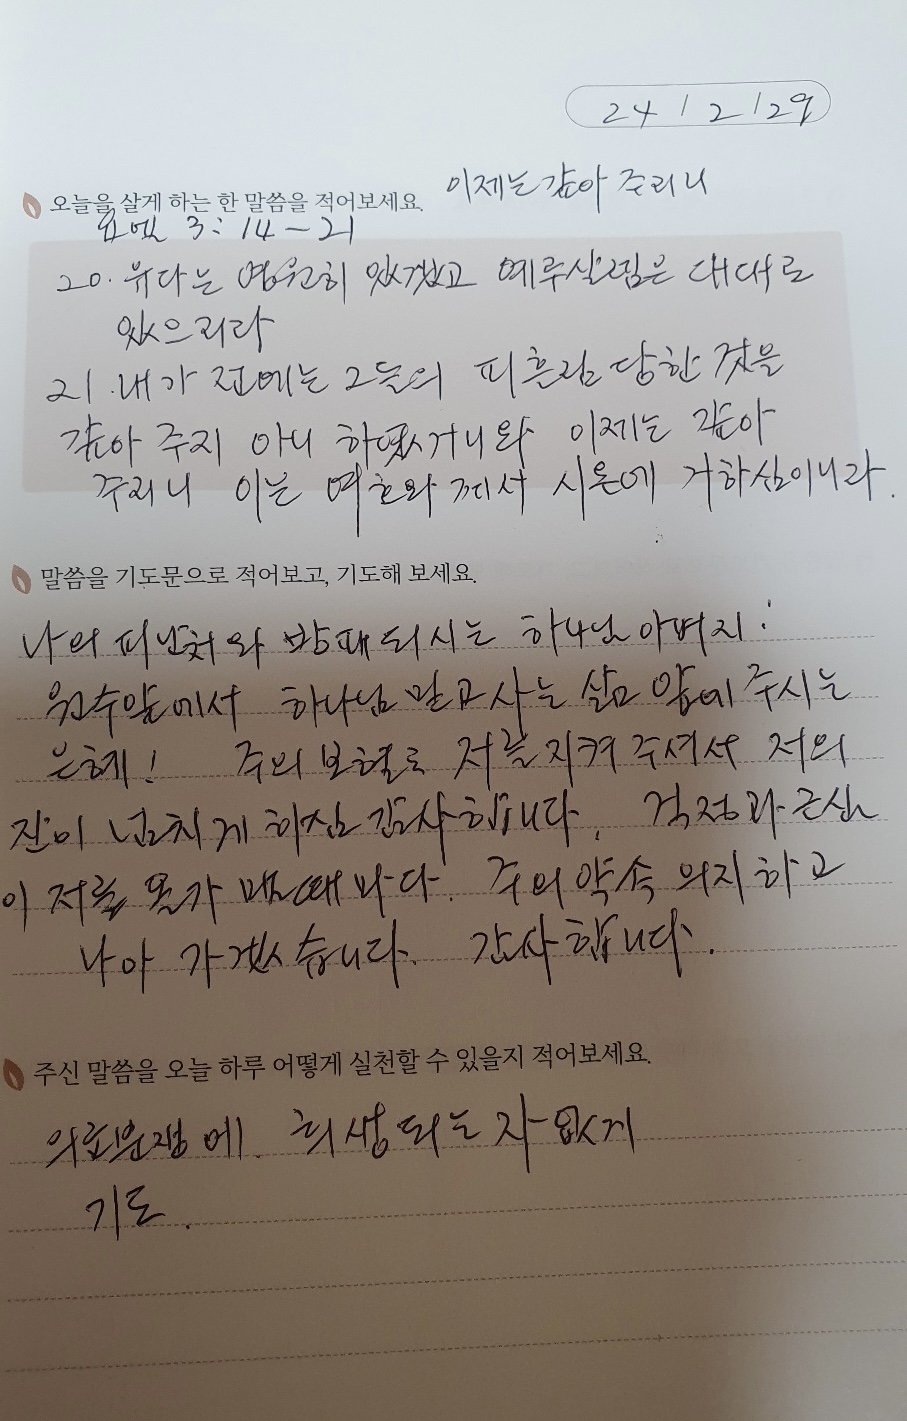 24 / 2 / 29
오늘을 살게 하는 한 말씀을 적어보세요. 이제는 갚아 주리니
요엘 3:14-21
20. 유다는 영원히 있겠고 예루살렘은 대대로
있으리라
21. 내가 전에는 그들의 피흘림 당한 것을
갚아 주지 아니 하였거니와 이제는 갚아
주리니 이는 여호와께서 시온에 거하심이니라.
말씀을 기도문으로 적어보고, 기도해 보세요.
나의 피난처와 방패되시는 하나님 아버지!
원수앞에서 하나님 믿고 사는 삶 앞에 주시는
은혜! 주의 보혈로 저를 지켜 주셔서 저의
잔이 넘치게 하심 감사합니다. 걱정과 근심
이 저를 옭가 맬때마다. 주의 약속 의지하고
나아 가겠습니다. 감사합니다.
주신 말씀을 오늘 하루 어떻게 실천할 수 있을지 적어보세요.
의료분쟁에 희생되는 자 없게
기도.